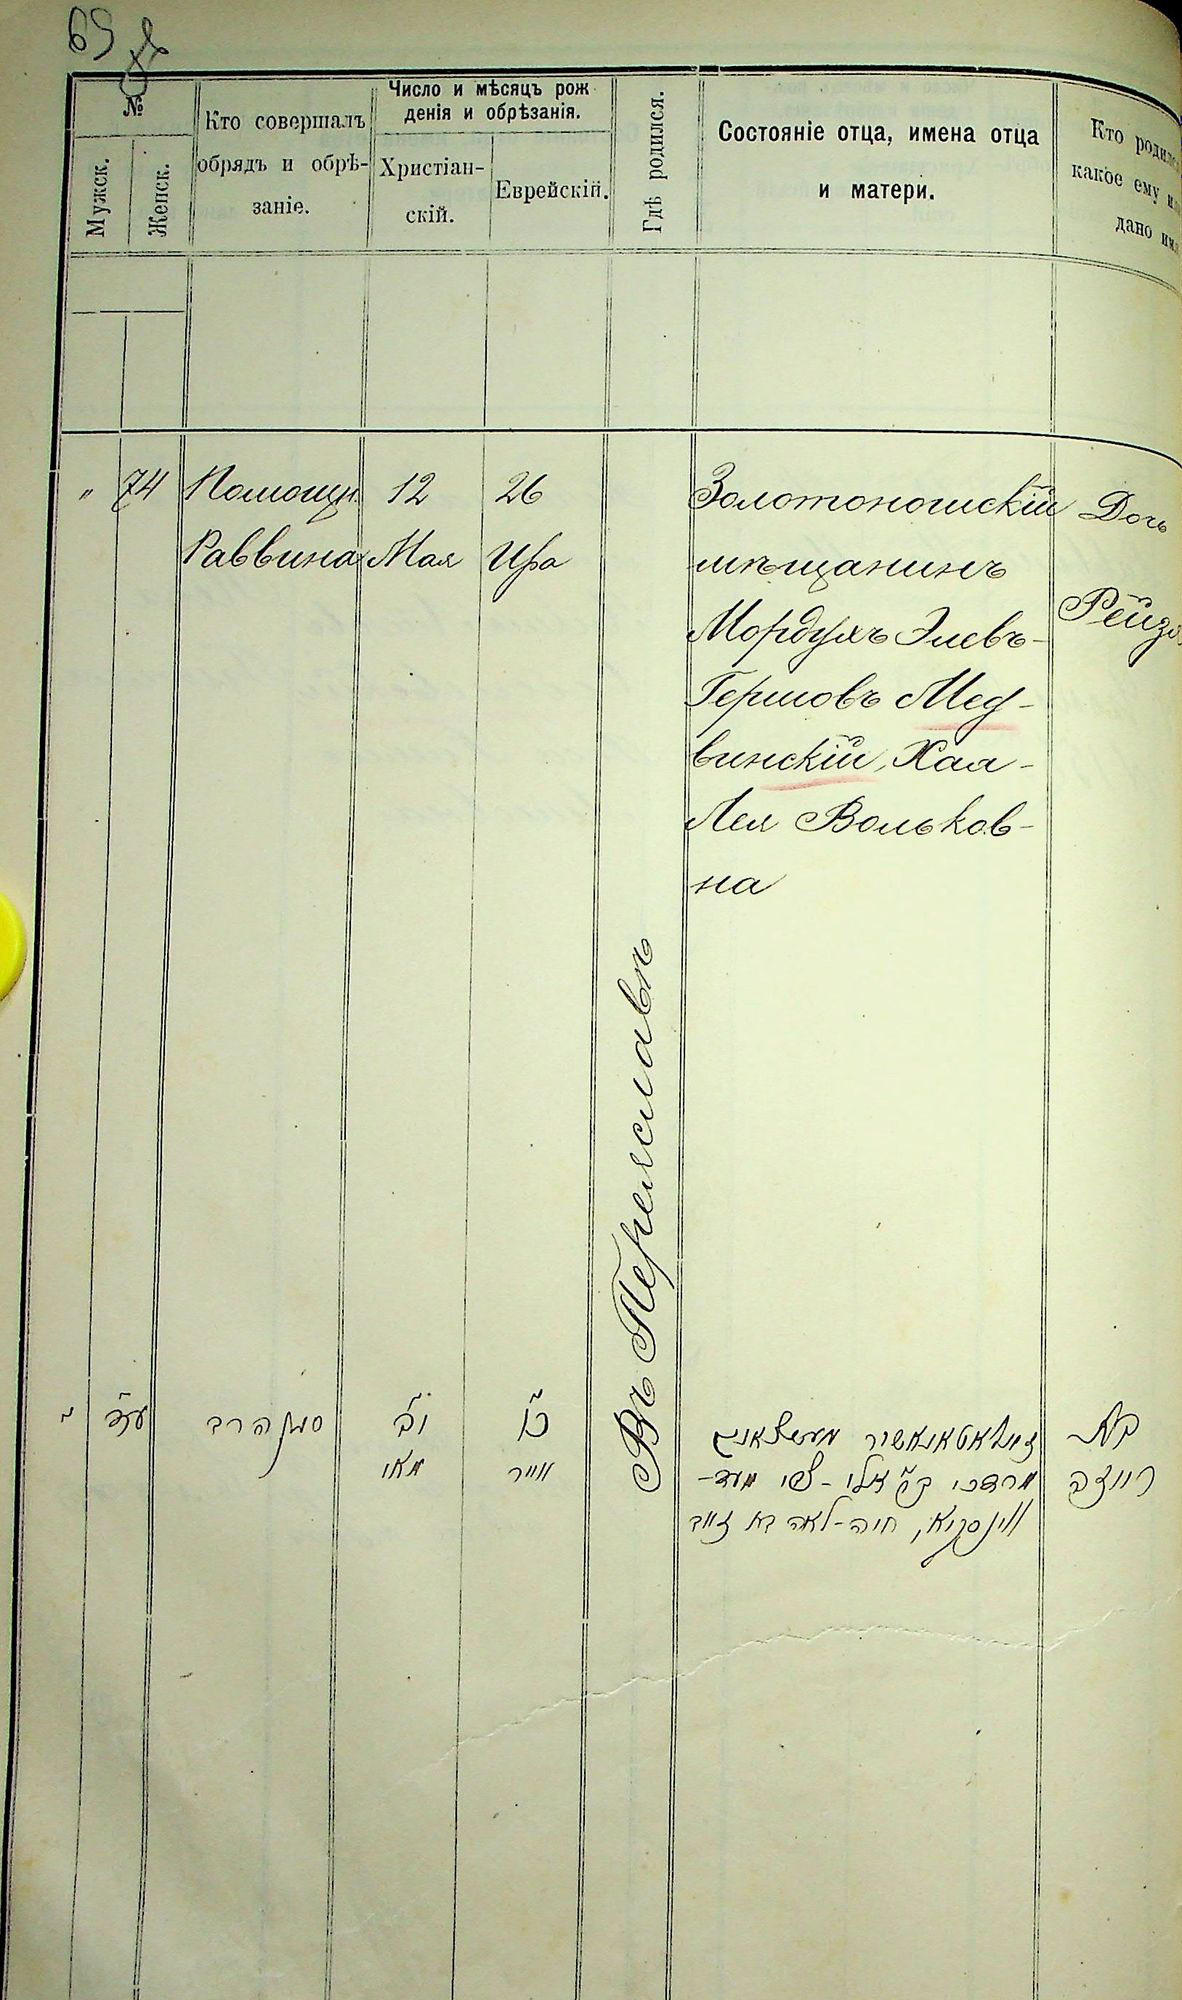 69
№
Мужск.
Женск.
Кто совершалъ
обрядъ и обрѣ-
заніе.
Число и мѣсяцъ рож
денія и обрѣзанія.
Христіан-
скій.
Еврейскій.
Гдѣ родился.
Состояніе отца, имена отца
и матери.
Кто
какое ему
дано
" 74
Помощн.
Раввина
12
Мая
26
Ира
Въ Переяславѣ
Золотоношскій
мѣщанинъ
Мордухъ Элевъ-
Гершовъ Мед-
винскій, Хая-
Лея Вольков-
на
Дочь
Рейзя
ע״ד
סגן הרב
י״ב
מאי
כ״ו
אייר
זאלאטאנאשיר מעשצאנין
מרדכי ב״ר אלי - צבי מעד-
ווינסקיא, חיה-לאה
בת
רייזה